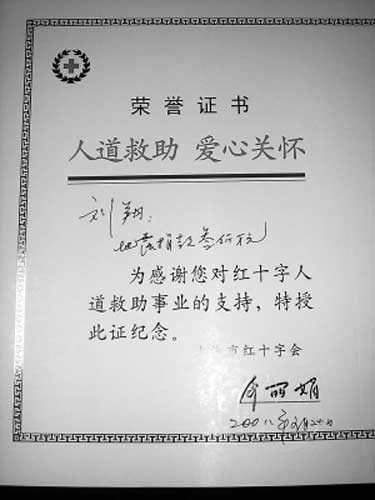 荣誉证书
人道救助 爱心关怀
刘翔:
地震捐款叁仟元
为感谢您对红十字人
道救助事业的支持，特授
此证纪念。
市红十字会
2008年5月